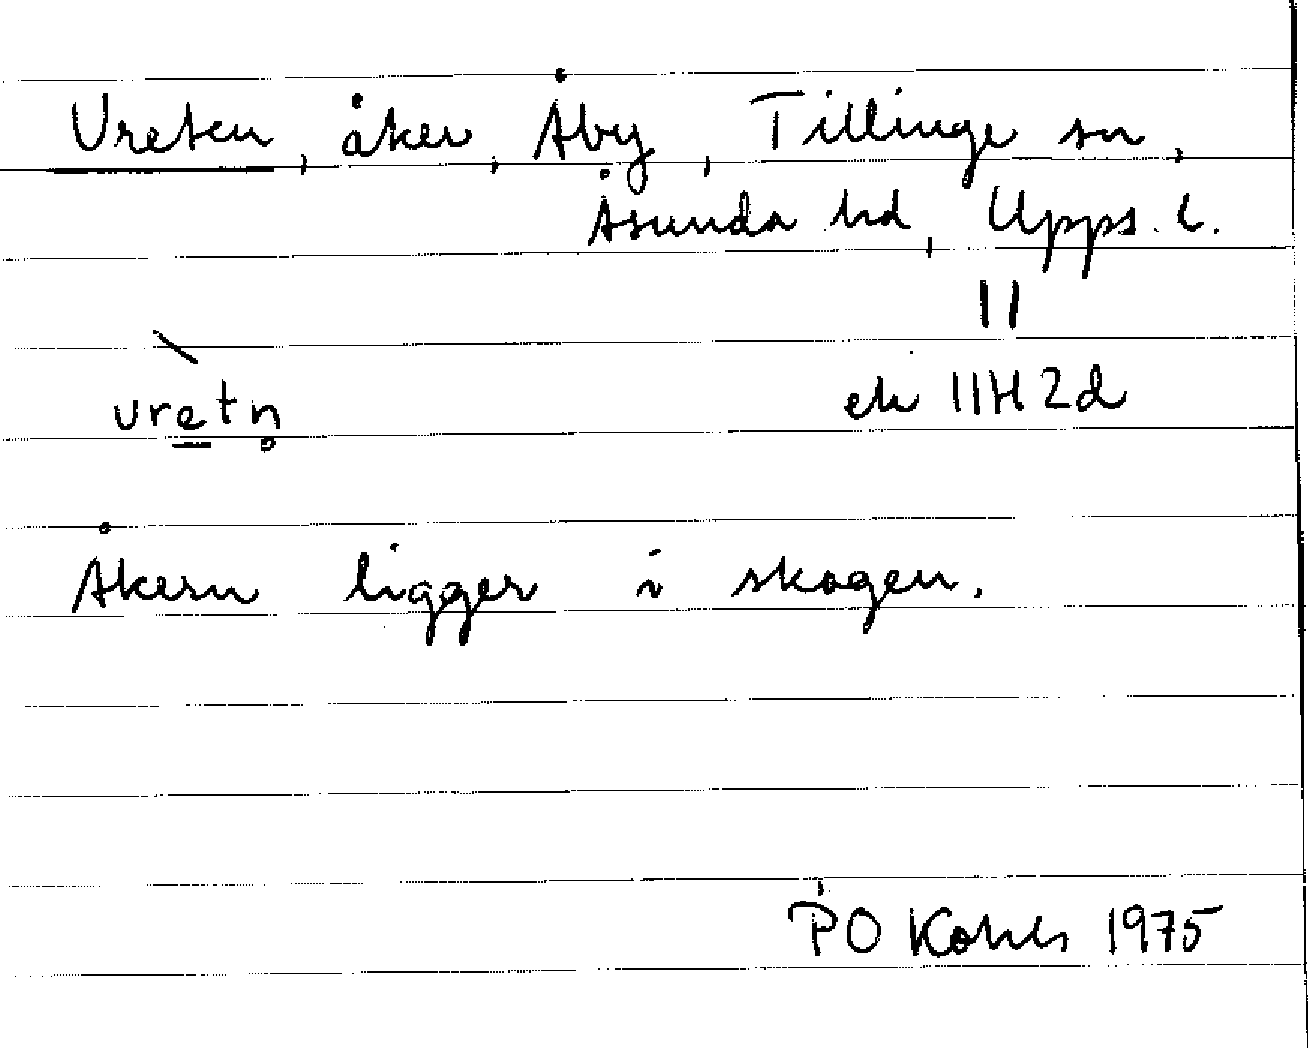 Vreten, åker, Åby, Tillinge sn,
Åsunda hd, Upps. l.
11
vretn̥
ek 11H2d
Åkern ligger i skogen.
PO 1975